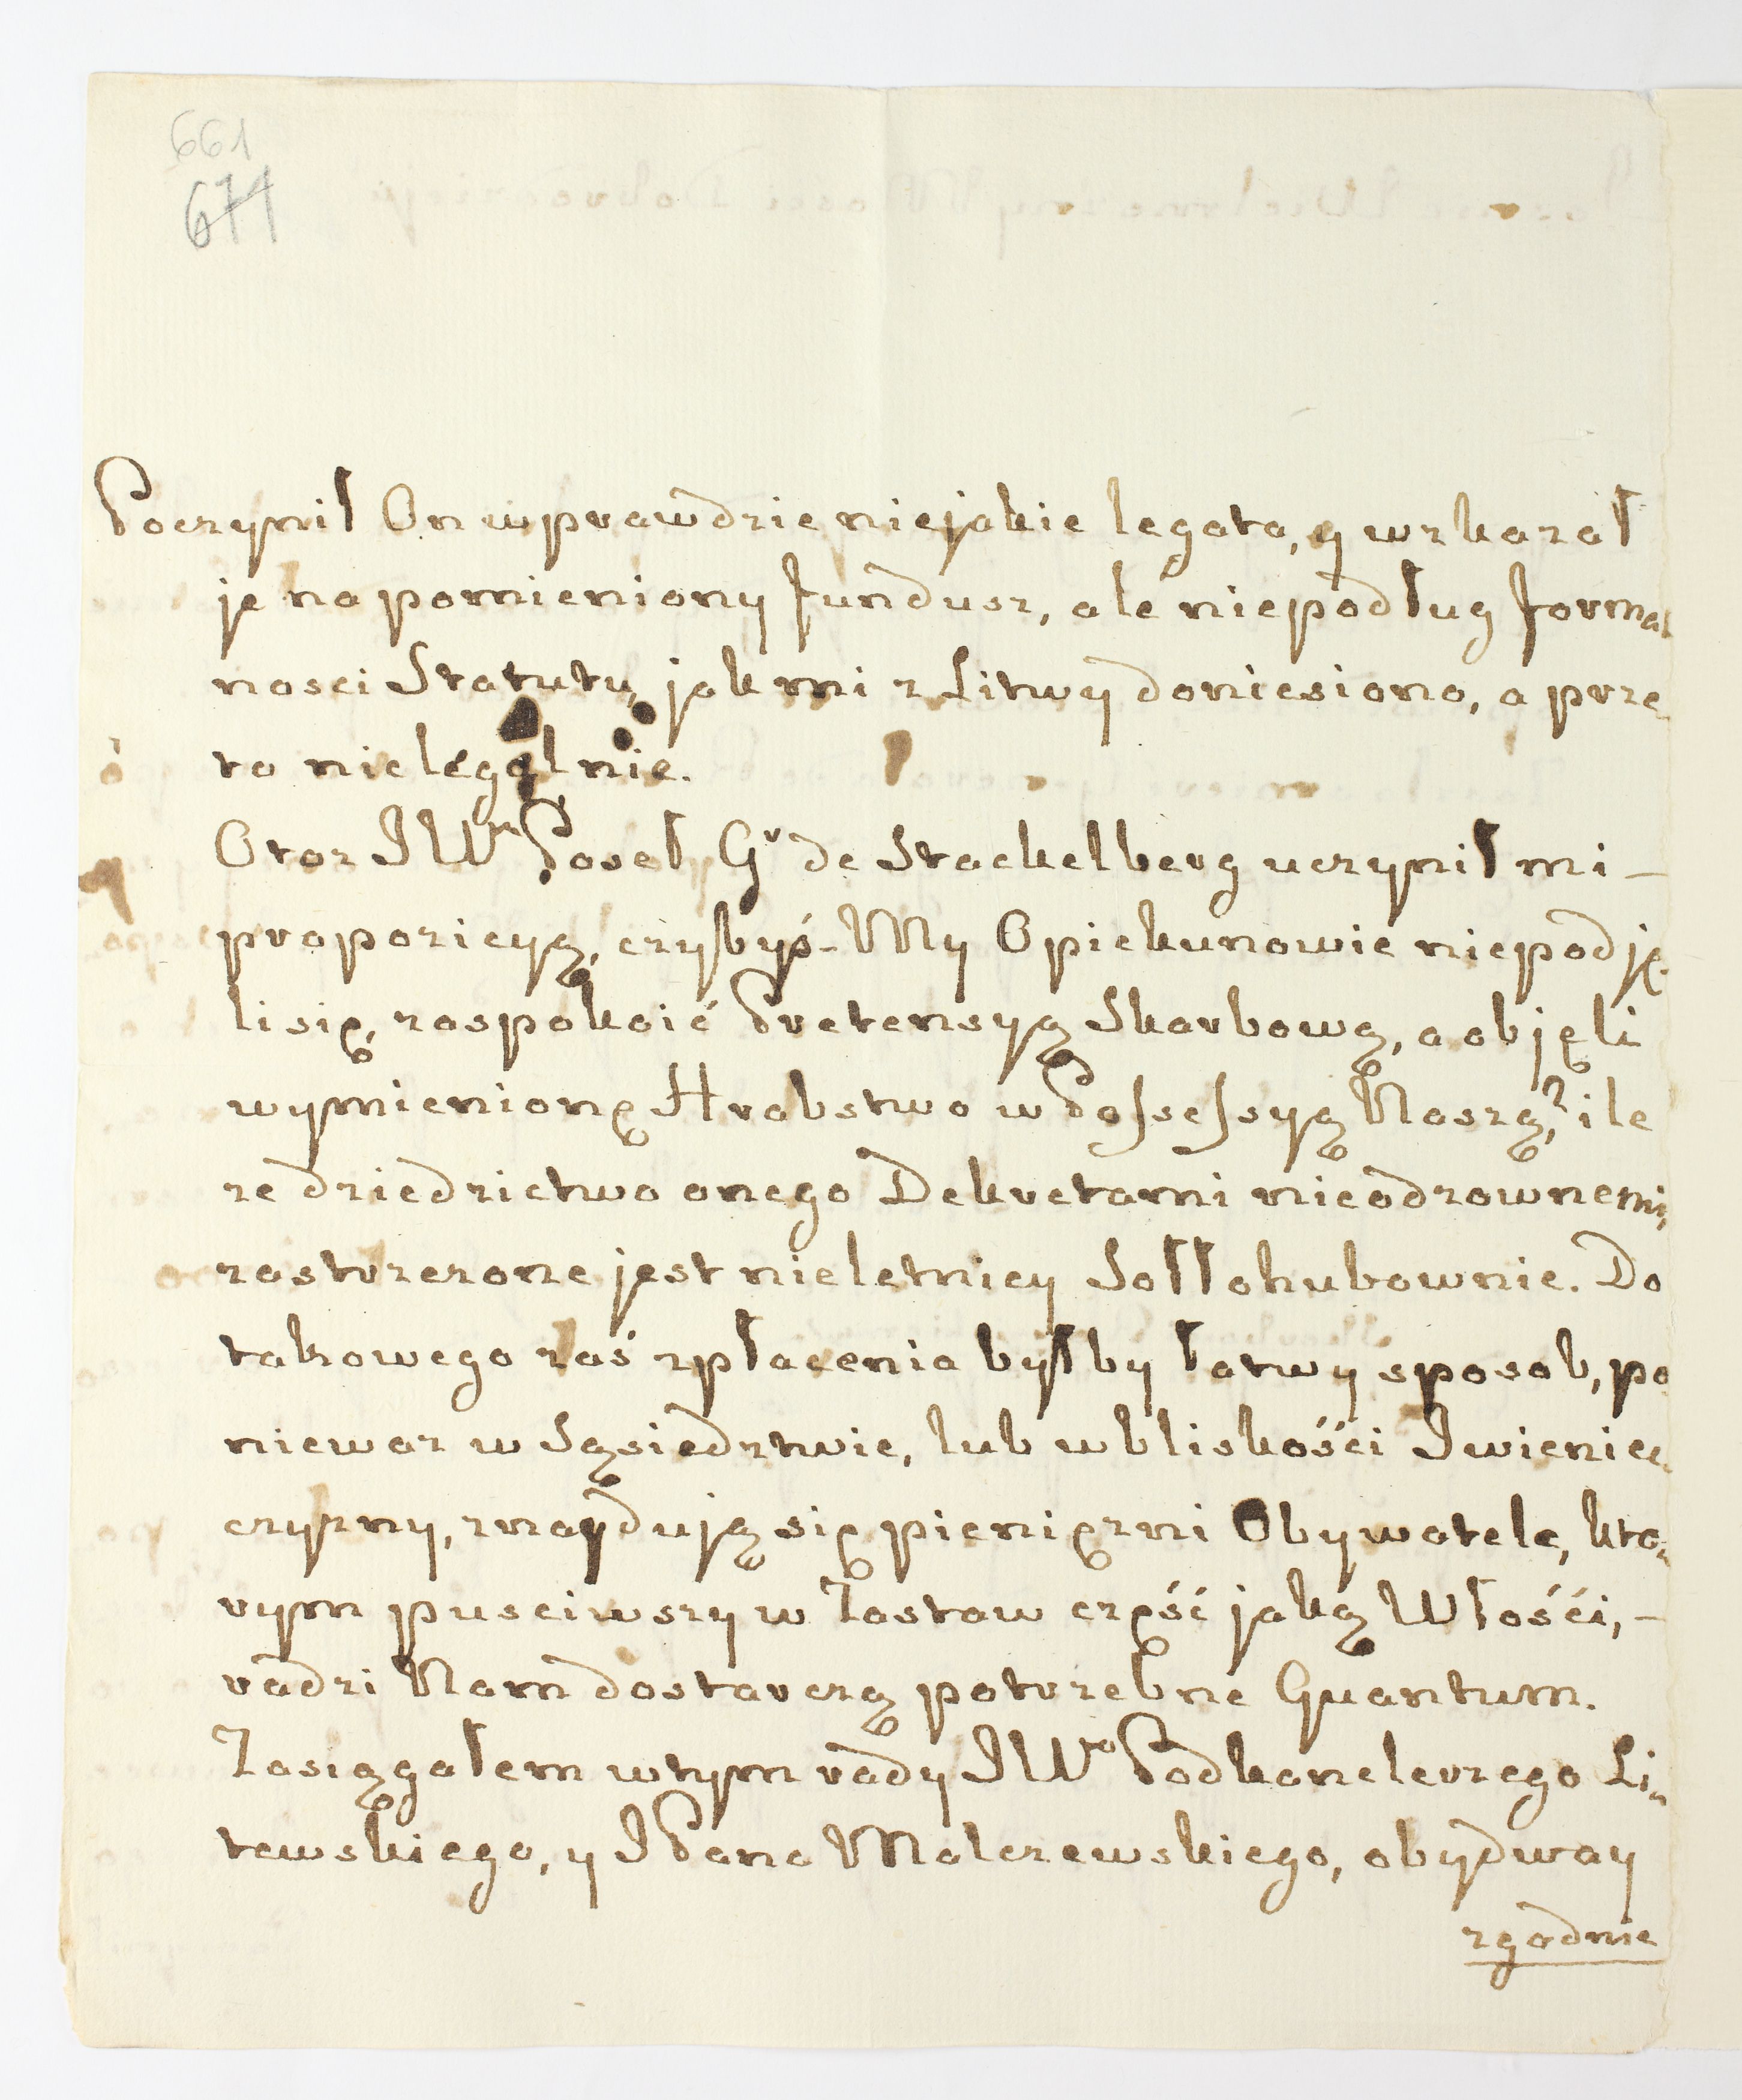 661
671
Poczynił On wprawdzie niejakie legata, y wskazał
je na pomieniony fundusz, ale niepodług formal
nosci Statutu, jak mi z Litwy doniesiono, a prze„
to nielegalnie.
Otoz JWn Poseł Gr de Stackelberg uczynił mi –
propozicyą, czyżbyś– My Opiekunowie niepodję„
li się, zaspokoić Pretensyą Skarbową, a objęli
wymienione Hrabstwo w Possessyą Naszą? ile
ze dziedzictwo onego Dekretami nieodzownemi,
zastrzezone jest nieletniey Sołłohubownie. Do
takowego zaś zpłacenia byłby łatwy sposob, po
niewaz w Sąsiedztwie, lub w bliskości Iwieniec„
czyzny, znaydują się pieniężni Obywatele, kto„
rym pusciwszy w Zastaw część jaką Włośći, –
radzi Nam dostarczą potrzebne Quantum.
Zasiągałem w tym rady JWo Podkanclerzego Li„
tewskiego, y JPana Malczewskiego, obydway
zgodnie